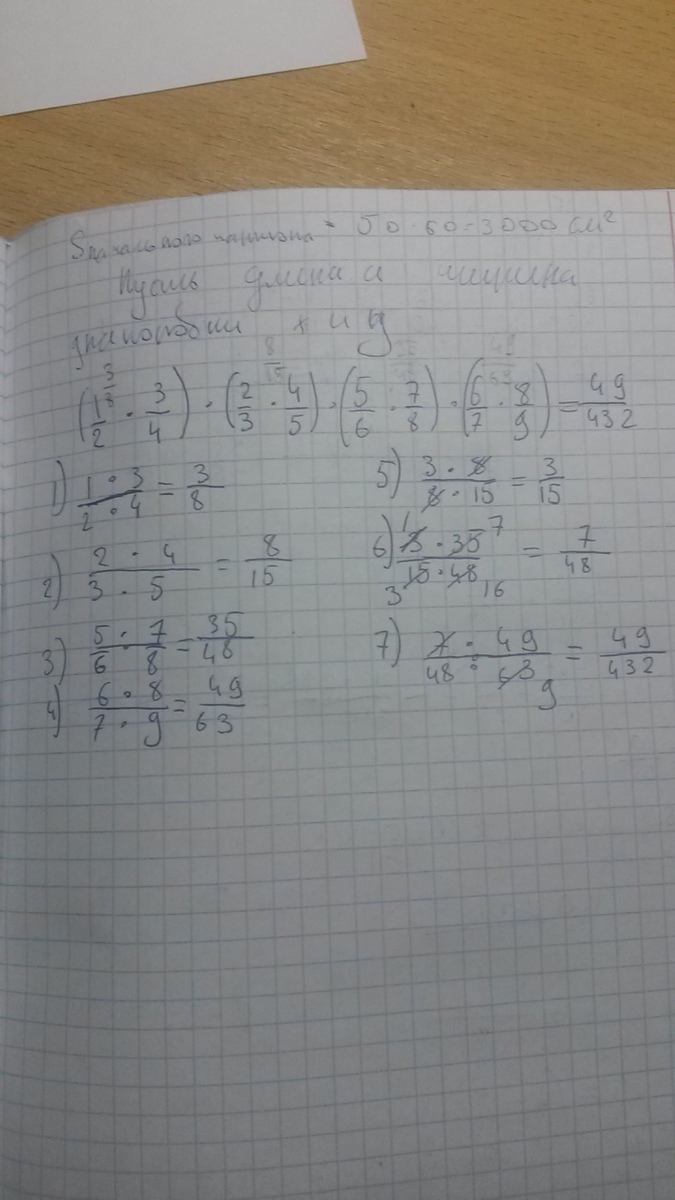 S начального картона = 50 · 60 = 3000 см²
Пусть длина и ширина
x и y
3/8 8/15 49/63
(1/2 · 3/4) · (2/3 · 4/5) · (5/6 · 7/8) · (6/7 · 8/9) = 49/432
1) 1 · 3 / 2 · 4 = 3/8
2) 2 · 4 / 3 · 5 = 8/15
3) 5 · 7 / 6 · 8 = 35/48
4) 6 · 8 / 7 · 9 = 49/63
5) 3 · 8 / 8 · 15 = 3/15
6) 1 3 · 35 7 / 3 15 · 48 16 = 7/48
7) 7 · 49 / 48 · 63 9 = 49/432